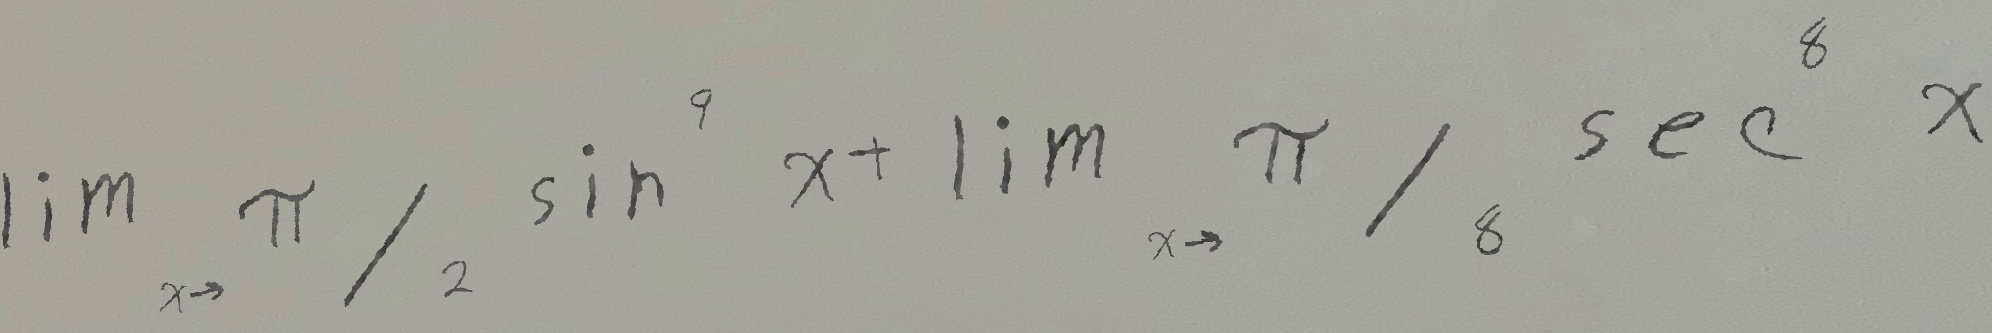 \lim_{x \to \pi/2} \sin^9 x + \lim_{x \to \pi/8} \sec^8 x